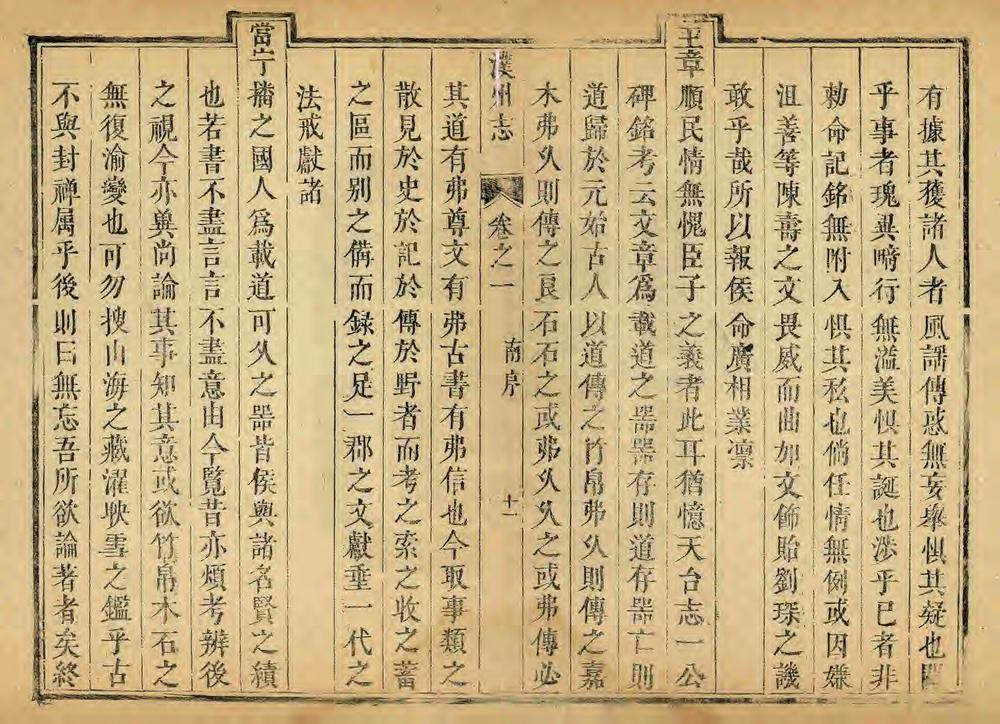 有據其獲諸人者風謠傳惑無妄舉惧其疑也
乎事者瑰異啼行無溢美惧其誕也渉乎已者非
勅命記銘無附入惧其私也倘任情無例或因嫌
沮善等陳壽之文畏威而曲如文飾貽劉琛之譏
敢乎哉所以報侯命廣相業凛
王章順民情無愧臣子之義者此耳猶憶天台志一公
碑銘考云文章爲載道之器器存則道存器亡則
道歸於元始古人以道傳之竹帛弗乆則傳之嘉
木弗乆則傳之良石石之或弗乆乆之或弗傳必
濮州志 卷之一 序 十一
其道有弗尊文有弗古書有弗信也今取事類之
散見於史於記於傳於野者而考之索之收之蓄
之區而别之備而録之足一郡之文獻垂一代之
法戒獻諸
當宁播之國人爲載道可乆之器昔侯與諸名賢之績
也若書不盡言言不盡意由今覽昔亦煩考辨後
之視今亦與尚論其事知其意或欲竹帛木石之
無復渝變也可勿搜山海之藏濯映雪之鑑乎古
不與封禅属乎後則曰無忘吾所欲論著者矣終